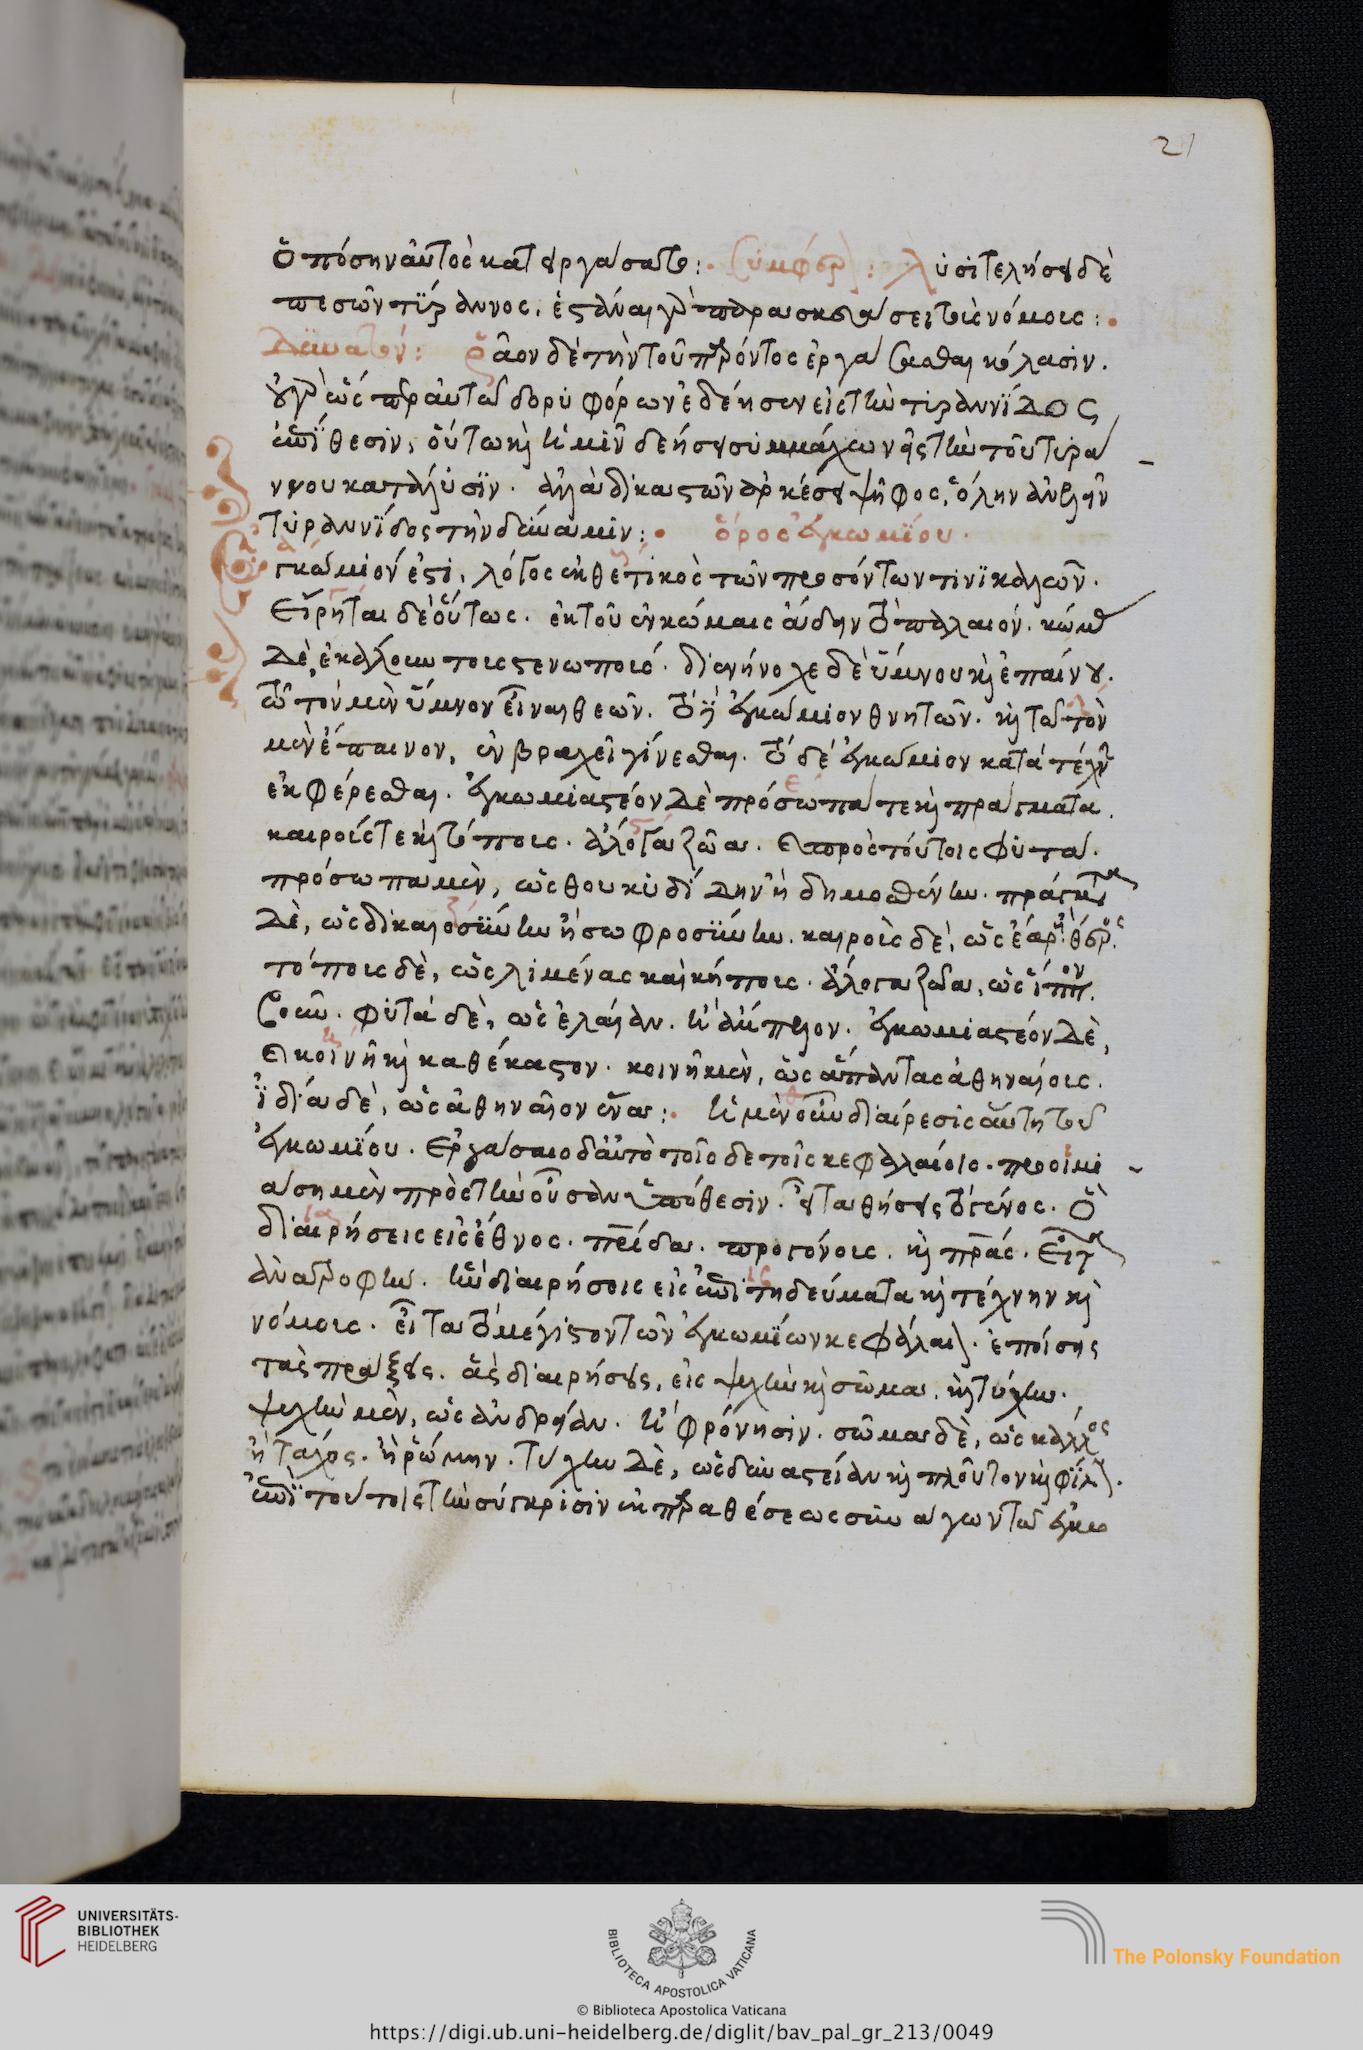 21
ὁπόσην αὐτὸς κατειργάσατο: συμφέρον: λυσιτελήσει δὲ
πεσὼν τύραννος, ἐστάναι γὰρ παρασκευάσει τοὺς νόμους:
Δυνατόν: ῥᾶον δὲ τὴν τοῦ παρόντος ἐργάσασθαι κόλασιν.
οὐ γὰρ ὡς παρ' αὐτῷ δορυφόρων ἐδέησεν εἰς τὴν τυραννίδος
ἐπίθεσιν, οὕτω καὶ ἡμῖν δεήσει συμμάχων εἰς τὴν τοῦ τυρά
ννου κατάλυσιν. ἀλλὰ δικαστῶν ἀρκέσει ψῆφος, ὅλην ἀνελεῖν
τυραννίδος τὴν δύναμιν: ὅρος ἐγκωμίου.
ἐγκώμιόν ἐστι, λόγος ἐκθετικὸς τῶν προσόντων τινὶ καλῶν.
Εἴρηται δὲ οὕτως. ἐκ τοῦ ἐν κώμαις ᾄδειν τὸ παλαιόν. κώμας
δὲ ἐκάλουν τοὺς στενωπούς. διενήνοχε δὲ ὕμνου καὶ ἐπαίνου.
τῷ τὸν μὲν ὕμνον εἶναι θεῶν. τὸ δὲ ἐγκώμιον θνητῶν. καὶ τῷ τὸν
μὲν ἔπαινον, ἐν βραχεῖ γίνεσθαι. τὸ δὲ ἐγκώμιον κατὰ τέχνην
ἐκφέρεσθαι. ἐγκωμιαστέον δὲ πρόσωπά τε καὶ πράγματα.
καιρούς τε καὶ τόπους. ἄλογα ζῷα. καὶ πρὸς τούτοις φυτά.
πρόσωπα μὲν, ὡς θουκυδίδην ἢ δημοσθένην. πράγματα
δὲ, ὡς δικαιοσύνην ἢ σωφροσύνην. καιροὺς δὲ, ὡς ἔαρ ἢ θέρος.
τόπους δὲ, ὡς λιμένας καὶ κήπους. ἄλογα ζῷα, ὡς ἵππον
ἢ βοῦν. φυτὰ δὲ, ὡς ἐλαίαν. ἢ ἄμπελον. ἐγκωμιαστέον δὲ,
καὶ κοινῇ καὶ καθέκαστον. κοινῇ μὲν, ὡς ἅπαντας ἀθηναίους.
ἰδίᾳ δὲ, ὡς ἀθηναῖον ἕνα: ἡ μὲν οὖν διαίρεσις αὕτη τοῦ
ἐγκωμίου. ἐργάσαιο δ' αὐτὸ τοῖσδε τοῖς κεφαλαίοις. προοιμι
άσῃ μὲν πρὸς τὴν οὖσαν ὑπόθεσιν. εἶτα θήσεις τὸ γένος. ὃ
διαιρήσεις εἰς ἔθνος. πατρίδα. προγόνους. καὶ πατέρας. εἶτα
ἀνατροφήν. ἣν διαιρήσεις εἰς ἐπιτηδεύματα καὶ τέχνην καὶ
νόμους. εἶτα τὸ μέγιστον τῶν ἐγκωμίων κεφάλαιον. ἐποίσεις
τὰς πράξεις. ἃς διαιρήσεις, εἰς ψυχὴν καὶ σῶμα. καὶ τύχην.
ψυχὴν μὲν, ὡς ἀνδρείαν. ἢ φρόνησιν. σῶμα δὲ, ὡς κάλλος
ἢ τάχος. ἢ ῥώμην. τύχην δὲ, ὡς δυναστείαν καὶ πλοῦτον καὶ φίλους.
ἐπὶ τούτοις τὴν σύγκρισιν ἐκ παραθέσεως συνάγων τῷ ἐγκω
UNIVERSITÄTS-
BIBLIOTHEK
HEIDELBERG
BIBLIOTECA APOSTOLICA VATICANA
The Polonsky Foundation
© Biblioteca Apostolica Vaticana
https://digi.ub.uni-heidelberg.de/diglit/bav_pal_gr_213/0049